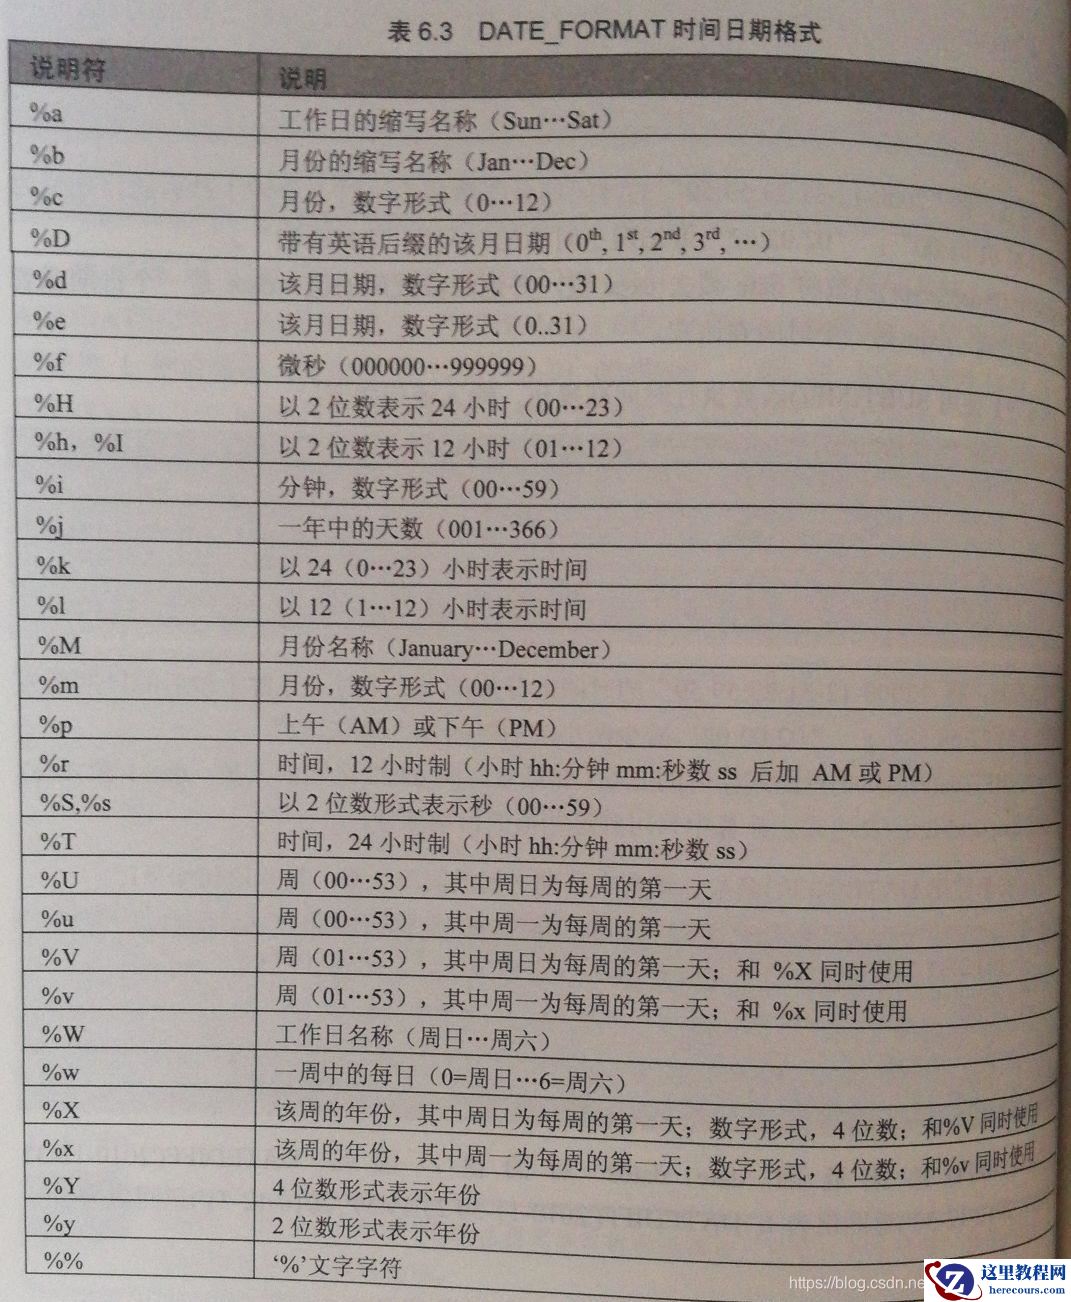 表 6.3 DATE_FORMAT 时间日期格式
说明符 说明
%a 工作日的缩写名称（Sun…Sat）
%b 月份的缩写名称（Jan…Dec）
%c 月份，数字形式（0…12）
%D 带有英语后缀的该月日期（0th, 1st, 2nd, 3rd, …）
%d 该月日期，数字形式（00…31）
%e 该月日期，数字形式（0..31）
%f 微秒（000000…999999）
%H 以 2 位数表示 24 小时（00…23）
%h，%I 以 2 位数表示 12 小时（01…12）
%i 分钟，数字形式（00…59）
%j 一年中的天数（001…366）
%k 以 24（0…23）小时表示时间
%l 以 12（1…12）小时表示时间
%M 月份名称（January…December）
%m 月份，数字形式（00…12）
%p 上午（AM）或下午（PM）
%r 时间，12 小时制（小时 hh:分钟 mm:秒数 ss 后加 AM 或 PM）
%S,%s 以 2 位数形式表示秒（00…59）
%T 时间，24 小时制（小时 hh:分钟 mm:秒数 ss）
%U 周（00…53），其中周日为每周的第一天
%u 周（00…53），其中周一为每周的第一天
%V 周（01…53），其中周日为每周的第一天；和 %X 同时使用
%v 周（01…53），其中周一为每周的第一天；和 %x 同时使用
%W 工作日名称（周日…周六）
%w 一周中的每日（0=周日…6=周六）
%X 该周的年份，其中周日为每周的第一天；数字形式，4 位数；和%V 同时使用
%x 该周的年份，其中周一为每周的第一天；数字形式，4 位数；和%v 同时使用
%Y 4 位数形式表示年份
%y 2 位数形式表示年份
%% ‘%’文字字符
https://blog.csdn.ne
这里教程网
herecours.com